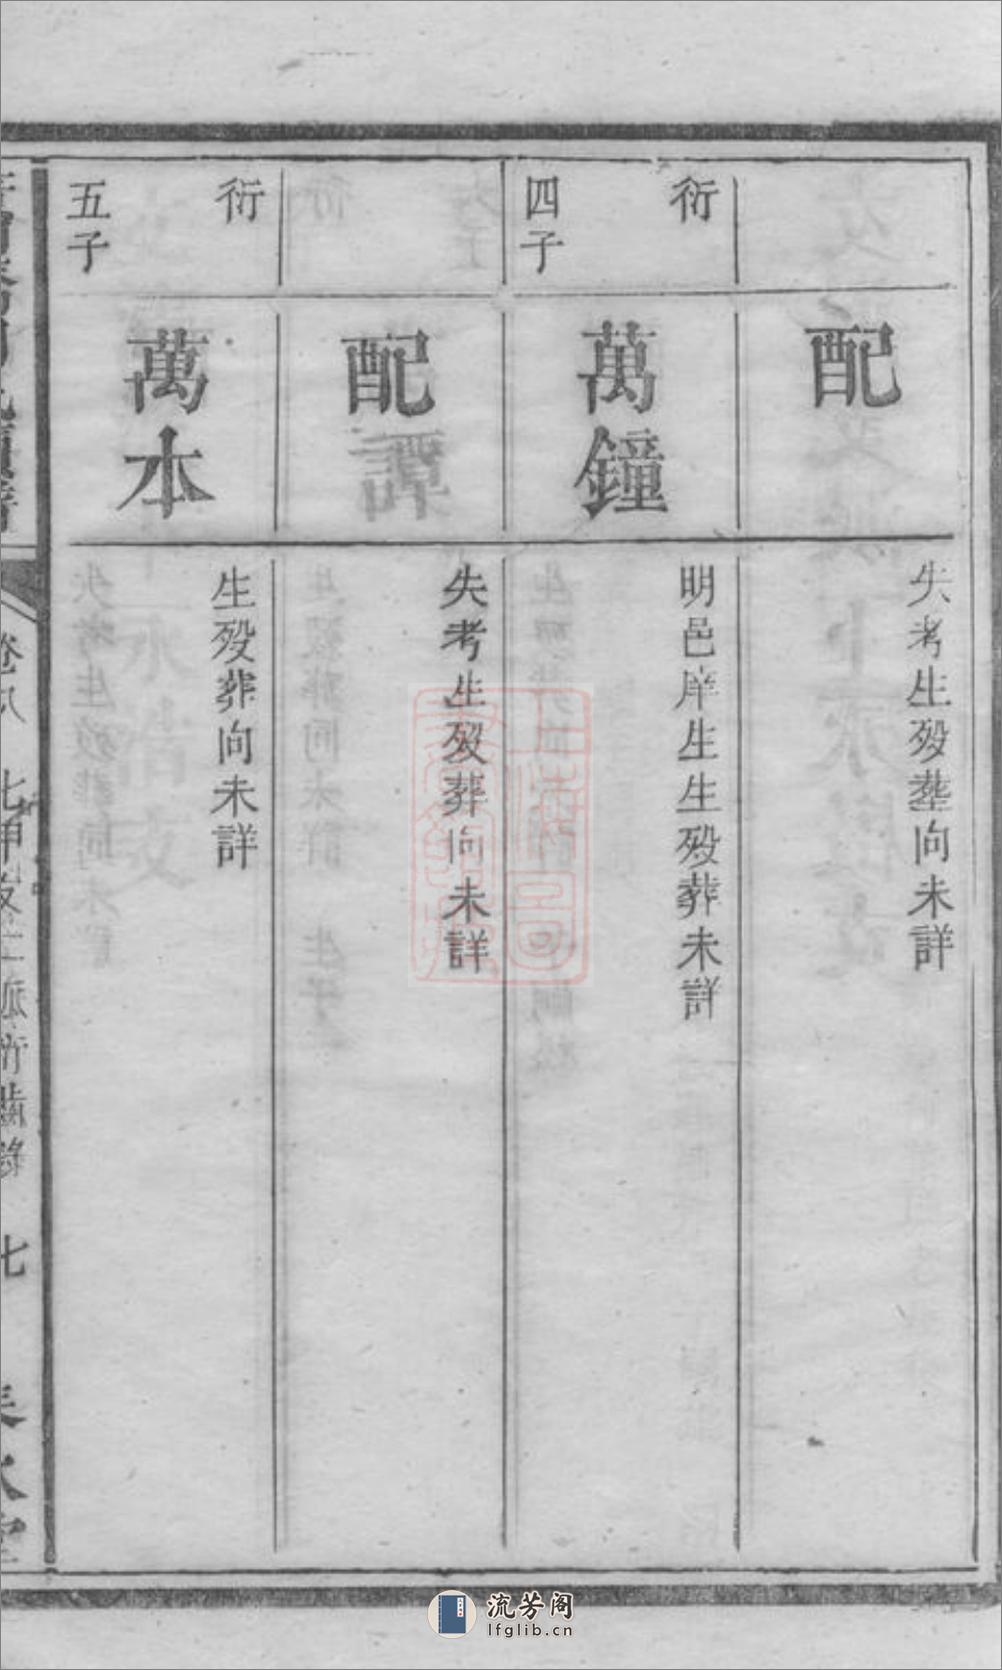 配
失考生歿葬向未詳
衍
四子
萬鐘
明邑庠生生歿葬未詳
配
失考生歿葬向未詳
衍
五子
萬本
生歿葬向未詳
卷八
七
流芳阁
lfglib.cn